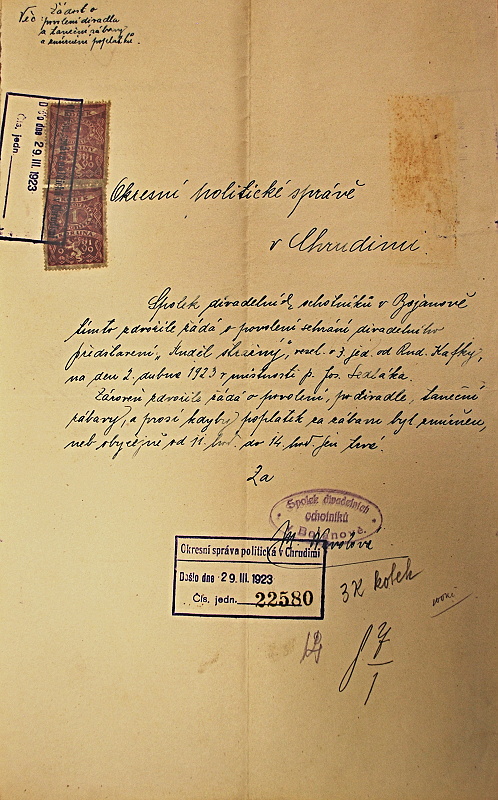 Věc Žádost o
povolení divadla
a taneční zábavy
a zmírnění poplatků.
Došlo dne 29. III. 1923
Čís. jedn.
Okresní politické správě
v Chrudimi
Spolek divadelních ochotníků v Bojanově
tímto zdvořile žádá o povolení sehrání divadelního
představení „Anděl strážný", vesel. o 3 jed. od Rud. Kafky,
na den 2. dubna 1923 v místnosti p. Jos. Sedláka.
Zároveň zdvořile žádá o povolení, po divadle, taneční
zábavy, a prosí kdyby poplatek za zábavu byl zmírněn,
neb obyčejně od 11 hod. do 14 hod. jen trvá.
Za
Spolek divadelních
ochotníků
v Bojanově.
Okresní správa politická v Chrudimi
Došlo dne 29. III. 1923
Čís. jedn. 22580
3K kolek